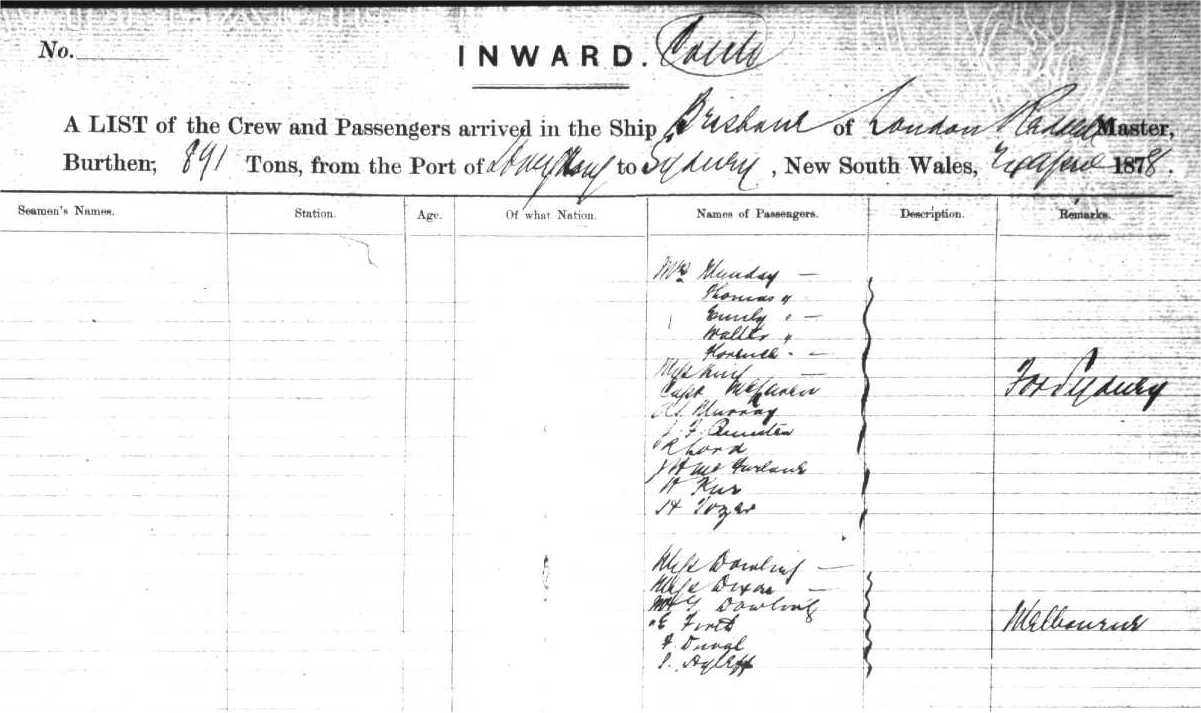 No.
INWARD.
A LIST of the Crew and Passengers arrived in the Ship Brisbane of London Master,
Burthen, 891 Tons, from the Port of Hong Kong to Sydney, New South Wales, 1878.
Seamen's Names. Station. Age. Of what Nation. Names of Passengers. Description. Remarks.
Mrs Munday —
Thomas "
Emily " —
Walter "
Florence " —
Miss
Capt
Murray
J. F.
R Lord
J H McFarlane
W Kerr
H Tozer
For Sydney
Miss Dowling —
Miss Dixon —
Mr G Dowling
" E Firth
F. Duval
S. Ayliff
Melbourne